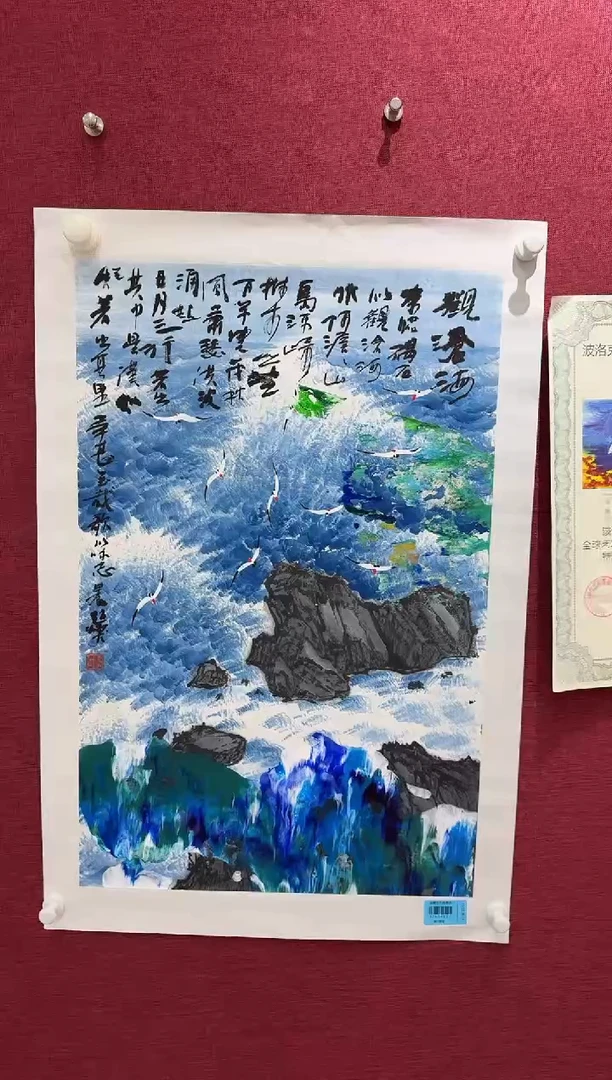 觀滄海
東臨碣石
以觀滄海
水何澹々山
島竦峙
樹木叢生
百草豐茂秋
風蕭瑟洪波
涌起
日月之行若出
其中星漢燦
爛若出其里幸甚至哉歌以咏志
波洛克